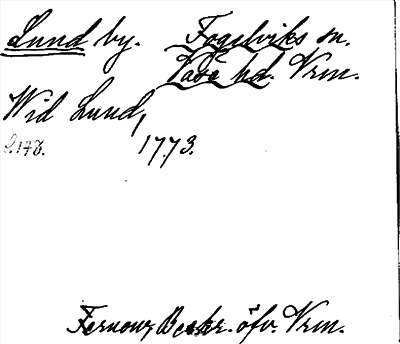 Lund by. Fogelviks sn.
Väse hd. Vrm.
Wid Lund,
s. 148. 1773.
Fernow, Beskr. öfv. Vrm.